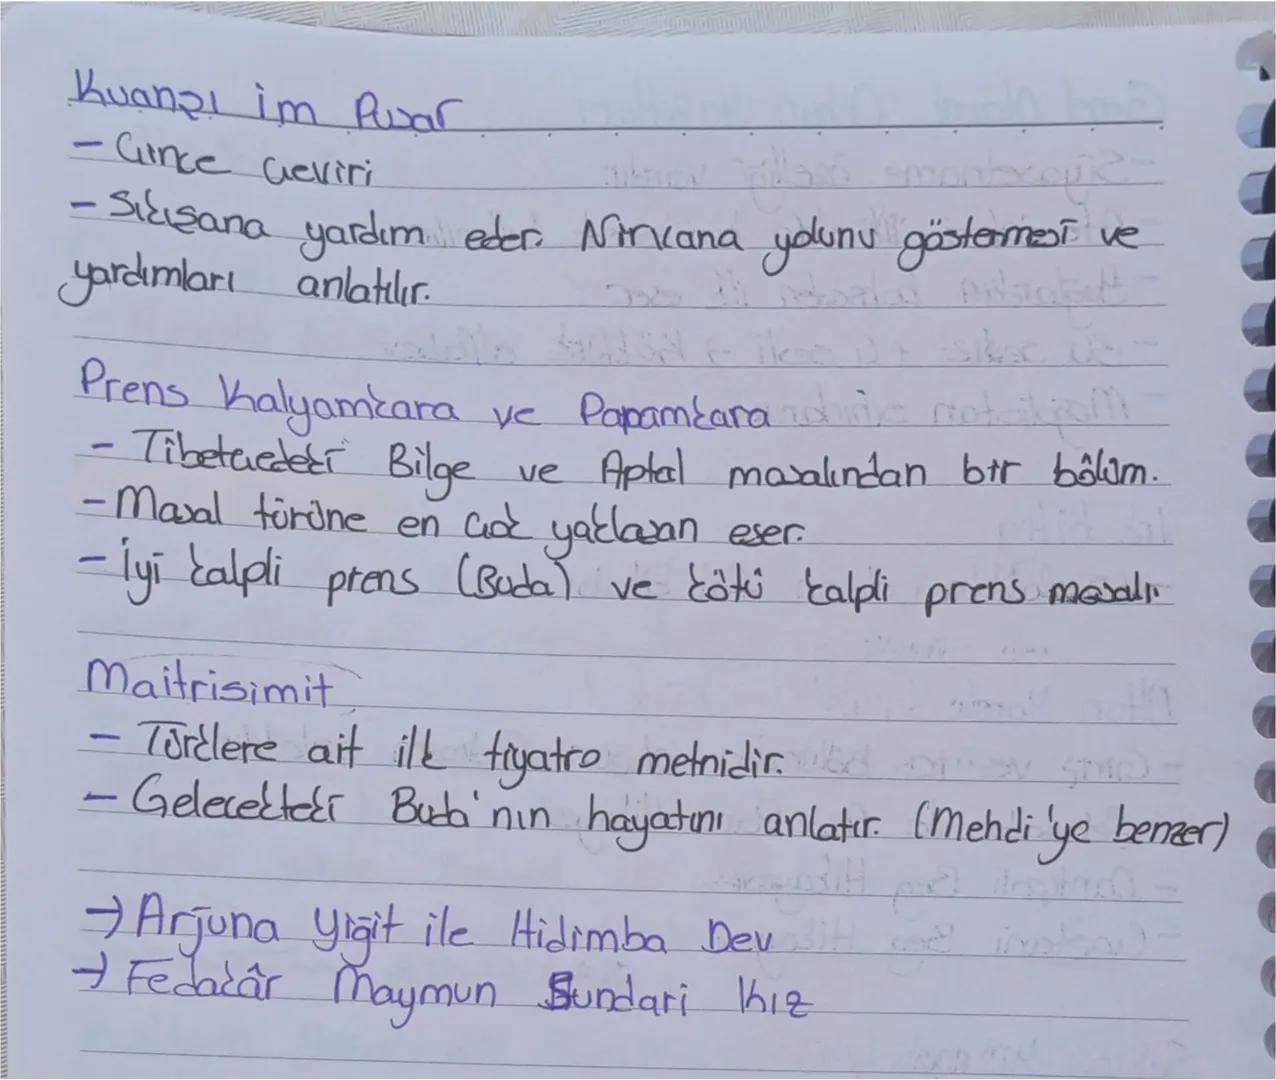 Kuanşı im Pusar
- Çince çeviri
- Sıkışana yardım eder. Nirvana yolunu göstermesi ve
yardımları anlatılır.
Prens Kalyamkara ve Papamkara
- Tibetçedeki Bilge ve Aptal masalından bir bölüm.
- Masal türüne en çok yaklaşan eser.
- İyi kalpli prens (Buda) ve kötü kalpli prens masalı
Maitrisimit
- Türklere ait ilk tiyatro metnidir.
- Gelecekteki Buda'nın hayatını anlatır. (Mehdi'ye benzer)
→ Arjuna Yiğit ile Hidimba Dev
→ Fedakâr Maymun Sundari Kız